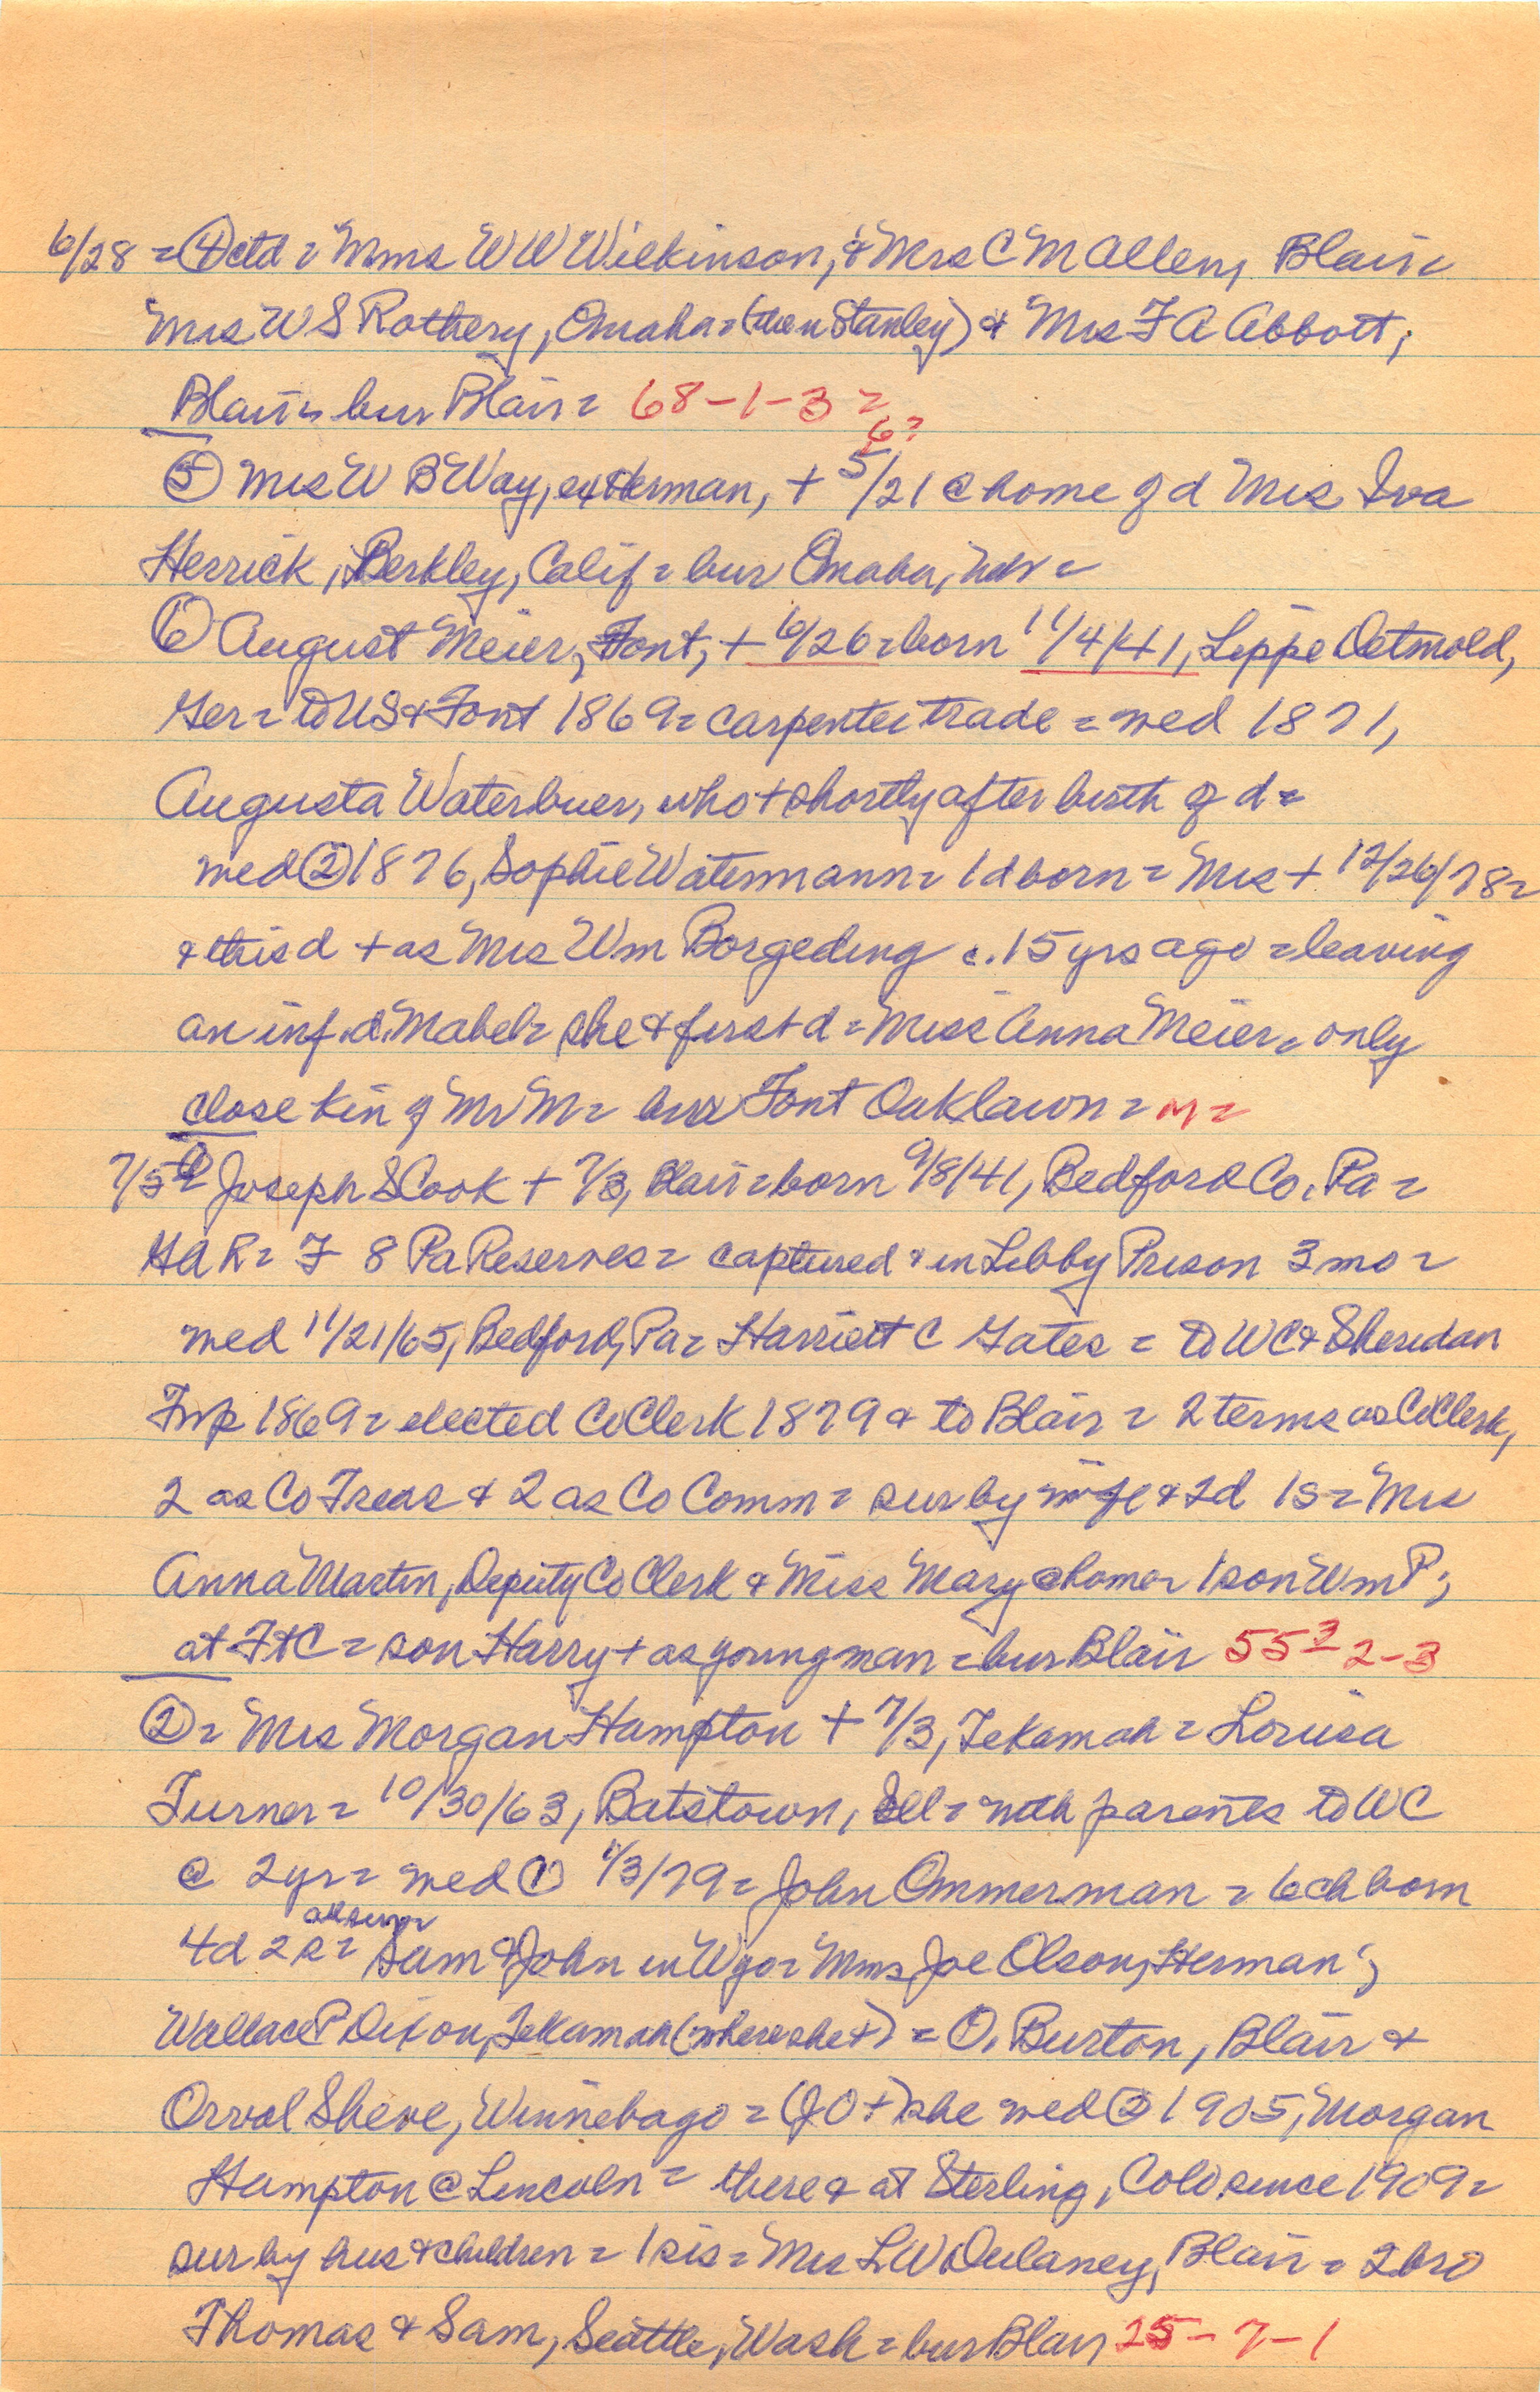 6/28 = ④ctd = Mms W W Wilkinson, & Mrs C M Allen, Blair =
Mrs W S Rathery, Omaha = (then Stanley) & Mrs F A Abbott,
Blair = bur Blair = 68-1-3 =
6?
⑤ Mrs W B Way, ex Herman, + 5/21 @ home of d Mrs Iva
Herrick, Berkley, Calif = bur Omaha, Neb =
⑥ August Meier, Font, + 6/26 = born 11/4/41, Lippe Detmold,
Ger = to US & Font 1869 = carpenter trade = med 1871,
Augusta Waterbuer, who + shortly after birth of d =
med ② 1876, Sophie Watermann = 1 d born = Mrs + 12/26/78 =
& this d + as Mrs Wm Borgeding c. 15 yrs ago = leaving
an inf. d. Mabel = she & first d = Miss Anna Meier = only
close kin of Mr M = bur Font Oaklawn = M =
7/5 ① Joseph S Cook + 7/3, Blair = born 9/8/41, Bedford Co, Pa =
GAR = F 8 Pa Reserves = captured & in Libby Prison 3 mo =
med 11/21/65, Bedford, Pa = Harriett C Gates = to WC & Sheridan
Twp 1869 = elected Co Clerk 1879 & to Blair = 2 terms as Co Clerk,
2 as Co Treas & 2 as Co Comm = sur by wife & 2d 1s = Mrs
Anna Martin, Deputy Co Clerk & Miss Mary @ home = 1 son Wm P,
at FtC = son Harry + as young man = bur Blair 55 = 2-3
② = Mrs Morgan Hampton + 7/3, Tekamah = Lorusa
Turner = 10/30/63, Batstown, Ill = with parents to WC
@ 2 yr = med ① 1/3/79 = John Ommerman = 6 ch born
all surv
4d 2 s = Sam & John in Wyo = Mms Joe Olson, Herman;
Wallace P Dixon, Tekamah (where she +) = O. Burton, Blair &
Orval Sheve, Winnebago = (JO +) she med ② 1905, Morgan
Hampton @ Lincoln = there & at Sterling, Colo since 1909 =
sur by hus & children = 1 sis = Mrs L W Dulaney, Blair = 2 bro
Thomas & Sam, Seattle, Wash = bur Blair 25-7-1